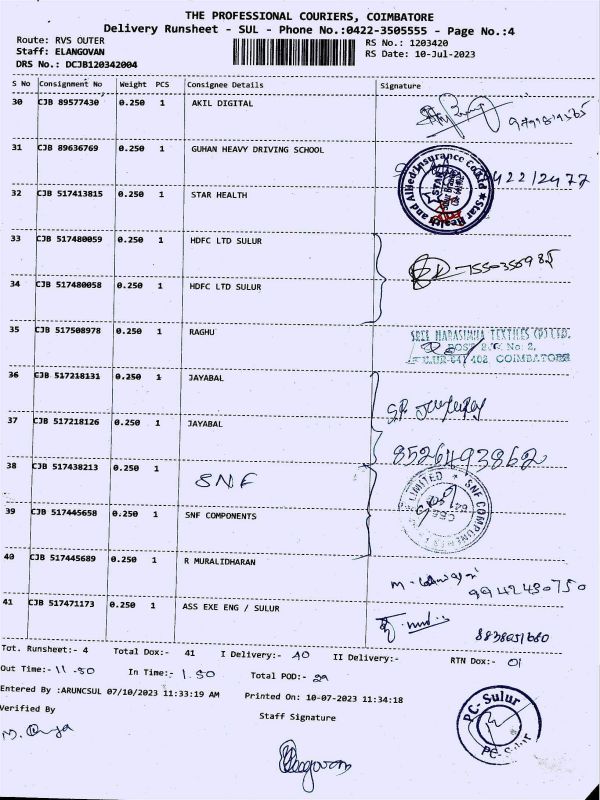 THE PROFESSIONAL COURIERS, COIMBATORE
Delivery Runsheet - SUL - Phone No.:0422-3505555 - Page No.:4
Route: RVS OUTER
RS No.: 1203420
Staff: ELANGOVAN
RS Date: 10-Jul-2023
DRS No.: DCJB120342004
S No Consignment No Weight PCS Consignee Details Signature
30 CJB 89577430 0.250 1 AKIL DIGITAL
31 CJB 89636769 0.250 1 GUHAN HEAVY DRIVING SCHOOL
32 CJB 517413815 0.250 1 STAR HEALTH
Star Health and Allied Insurance Co Ltd
33 CJB 517480059 0.250 1 HDFC LTD SULUR
34 CJB 517480058 0.250 1 HDFC LTD SULUR
35 CJB 517508978 0.250 1 RAGHU
SREE NARASIMHA TEXTILES (P) LTD.
POST No: 2,
641 402 COIMBATORE
36 CJB 517218131 0.250 1 JAYABAL
37 CJB 517218126 0.250 1 JAYABAL
8526493862
38 CJB 517438213 0.250 1 SNF
39 CJB 517445658 0.250 1 SNF COMPONENTS
SNF COMPONENTS LIMITED
40 CJB 517445689 0.250 1 R MURALIDHARAN
9942430750
41 CJB 517471173 0.250 1 ASS EXE ENG / SULUR
8838651680
Tot. Runsheet:- 4 Total Dox:- 41 I Delivery:- 40 II Delivery:- RTN Dox:- 01
Out Time:- 11.50 In Time:- 1.50 Total POD:- 29
Entered By :ARUNCSUL 07/10/2023 11:33:19 AM Printed On: 10-07-2023 11:34:18
Verified By Staff Signature
PC- Sulur
PC- Sulur
Elangovan